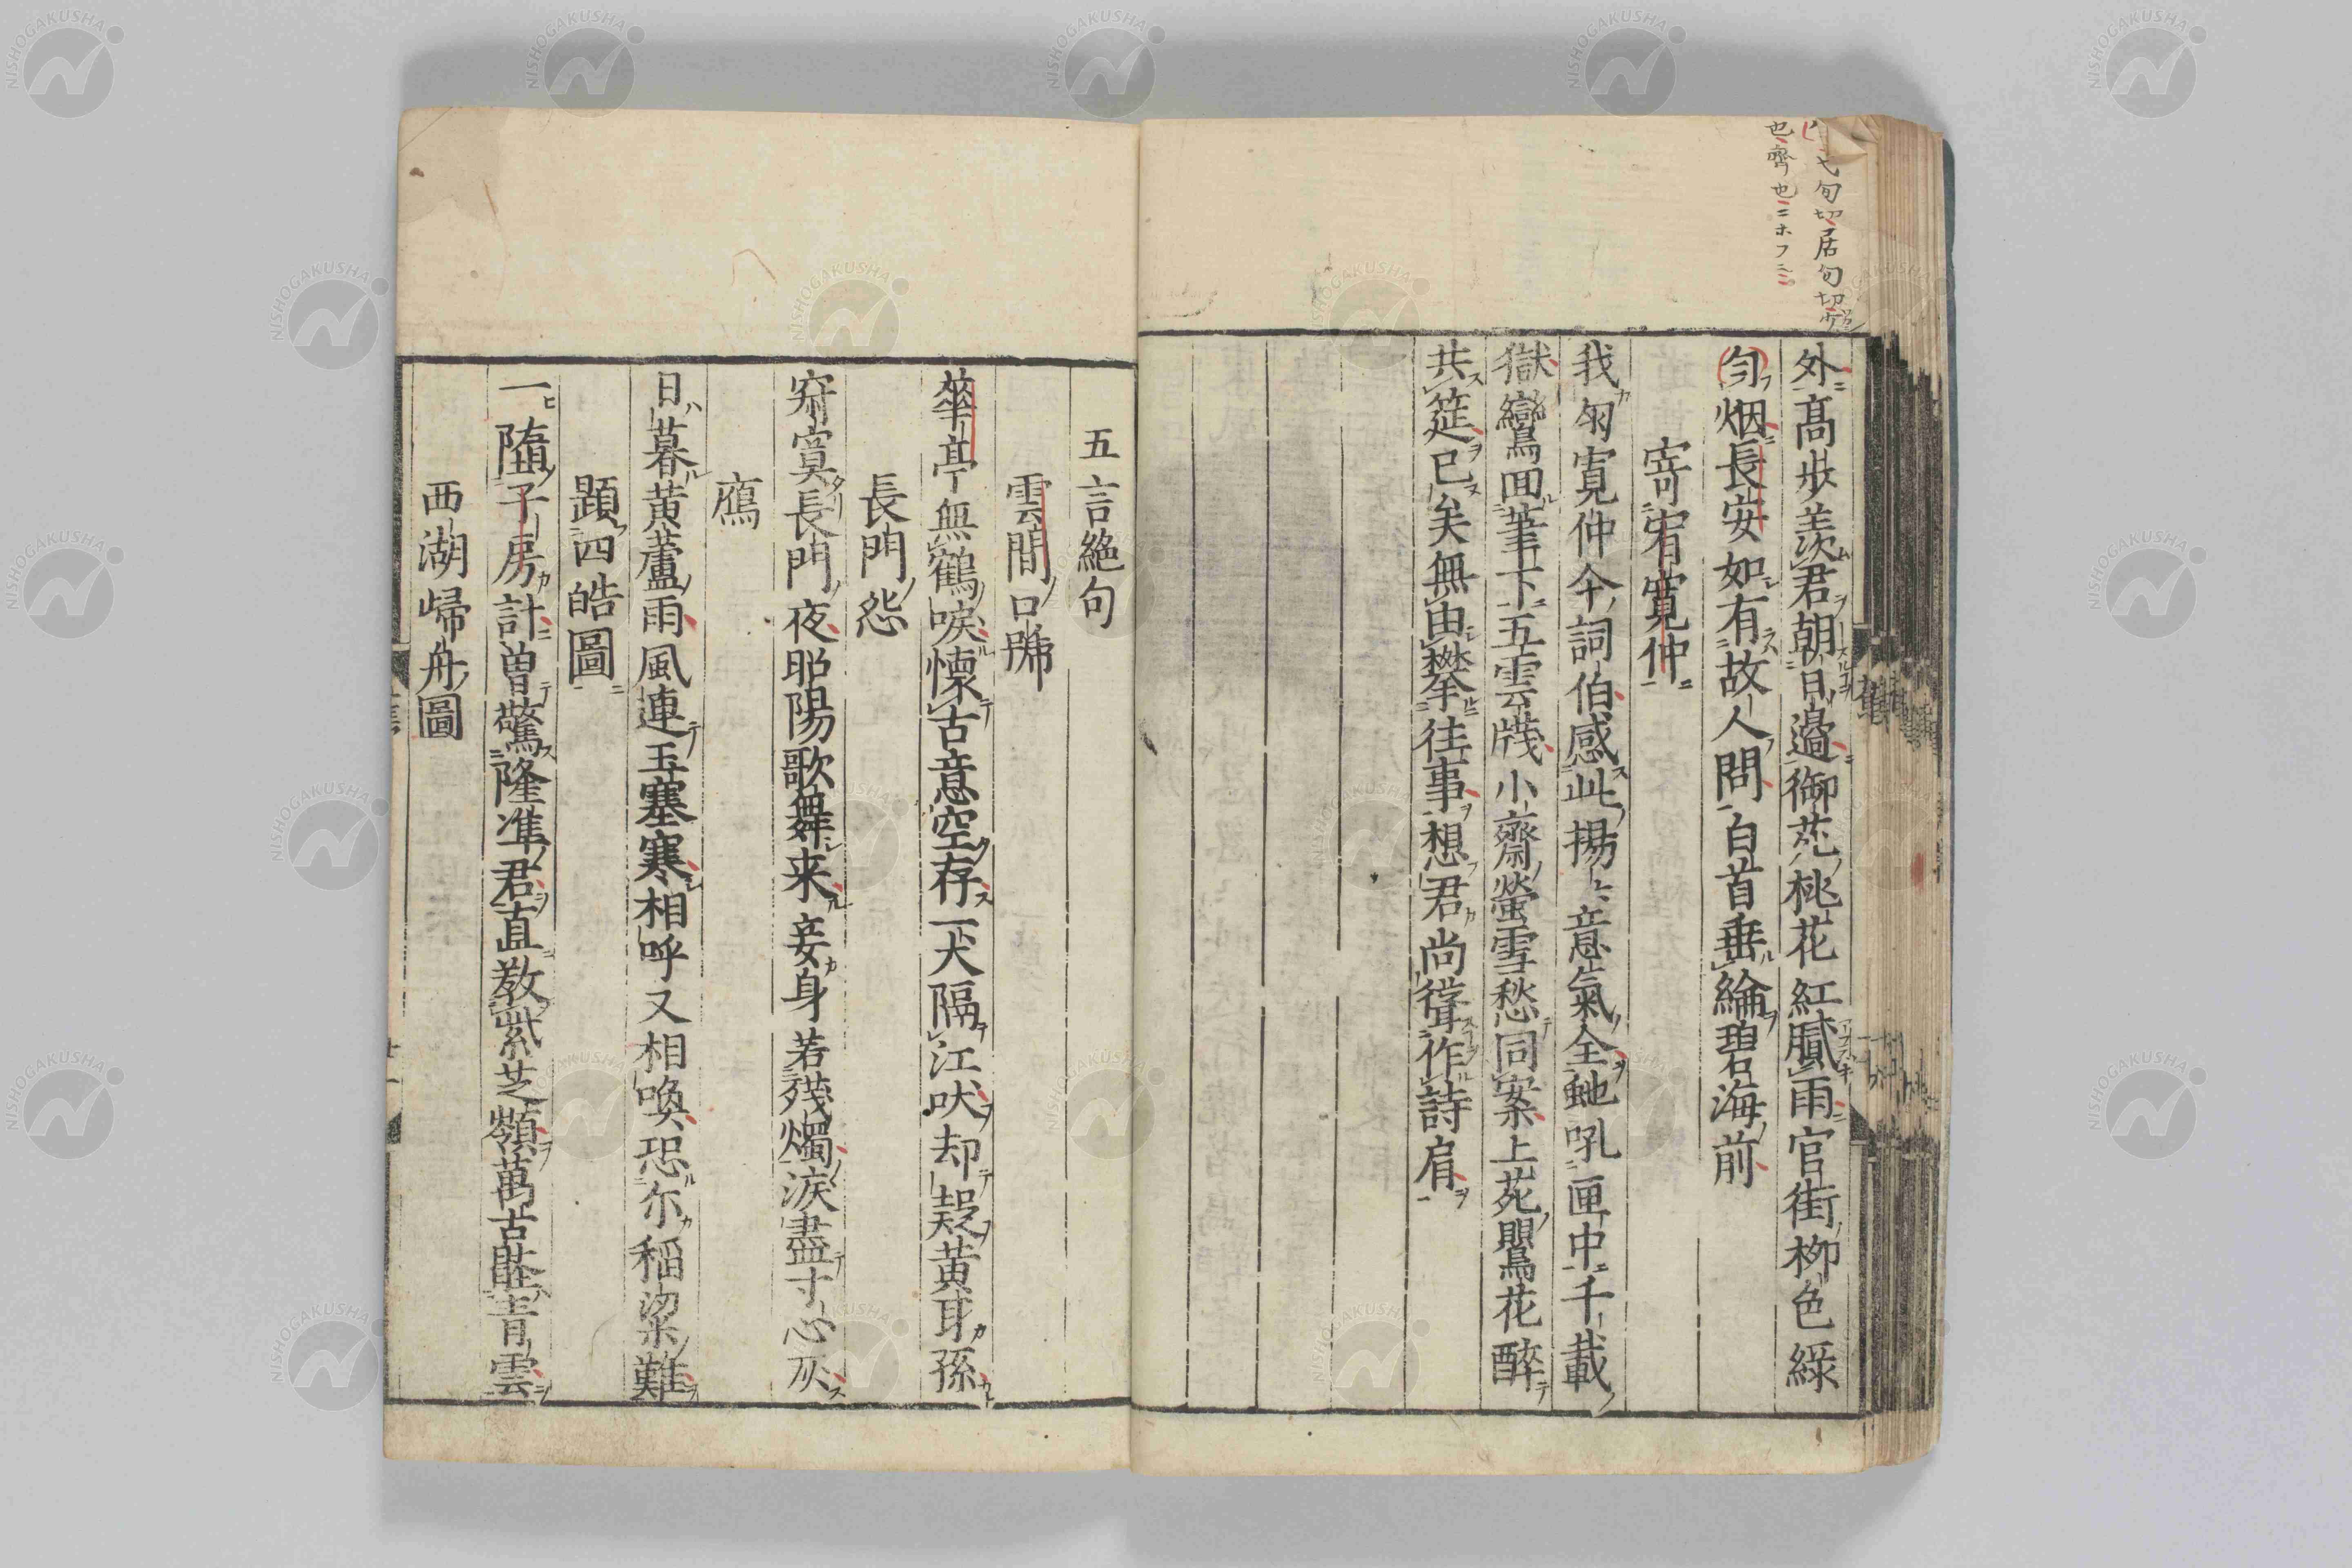 外高步羨君朝日邊御苑桃花紅膩雨官街柳色綠
勻烟長安如有故人問白首垂綸碧海前
寄宥寬仲
我匆寬仲今詞伯感此揚々意氣全虵吼匣中千載
獄鸞回筆下五雲牋小齋螢雪愁同案上苑鸎花醉
共筵已矣無由攀往事想君尚聳作詩肩
五言絶句
雲間口號
華亭無鶴唳懷古意空存一犬隔江吠却疑黄耳孫
長門怨
窈寞長門夜昭陽歌舞来妾身若殘燭淚盡寸心灰
鴈
日暮黄蘆雨風連玉塞寒相呼又相喚恐尓稲粱難
題四皓圖
一墮子房計曽驚隆準君直教紫芝嶺萬古
青雲
西湖歸舟圖
NISHOGAKUSHA